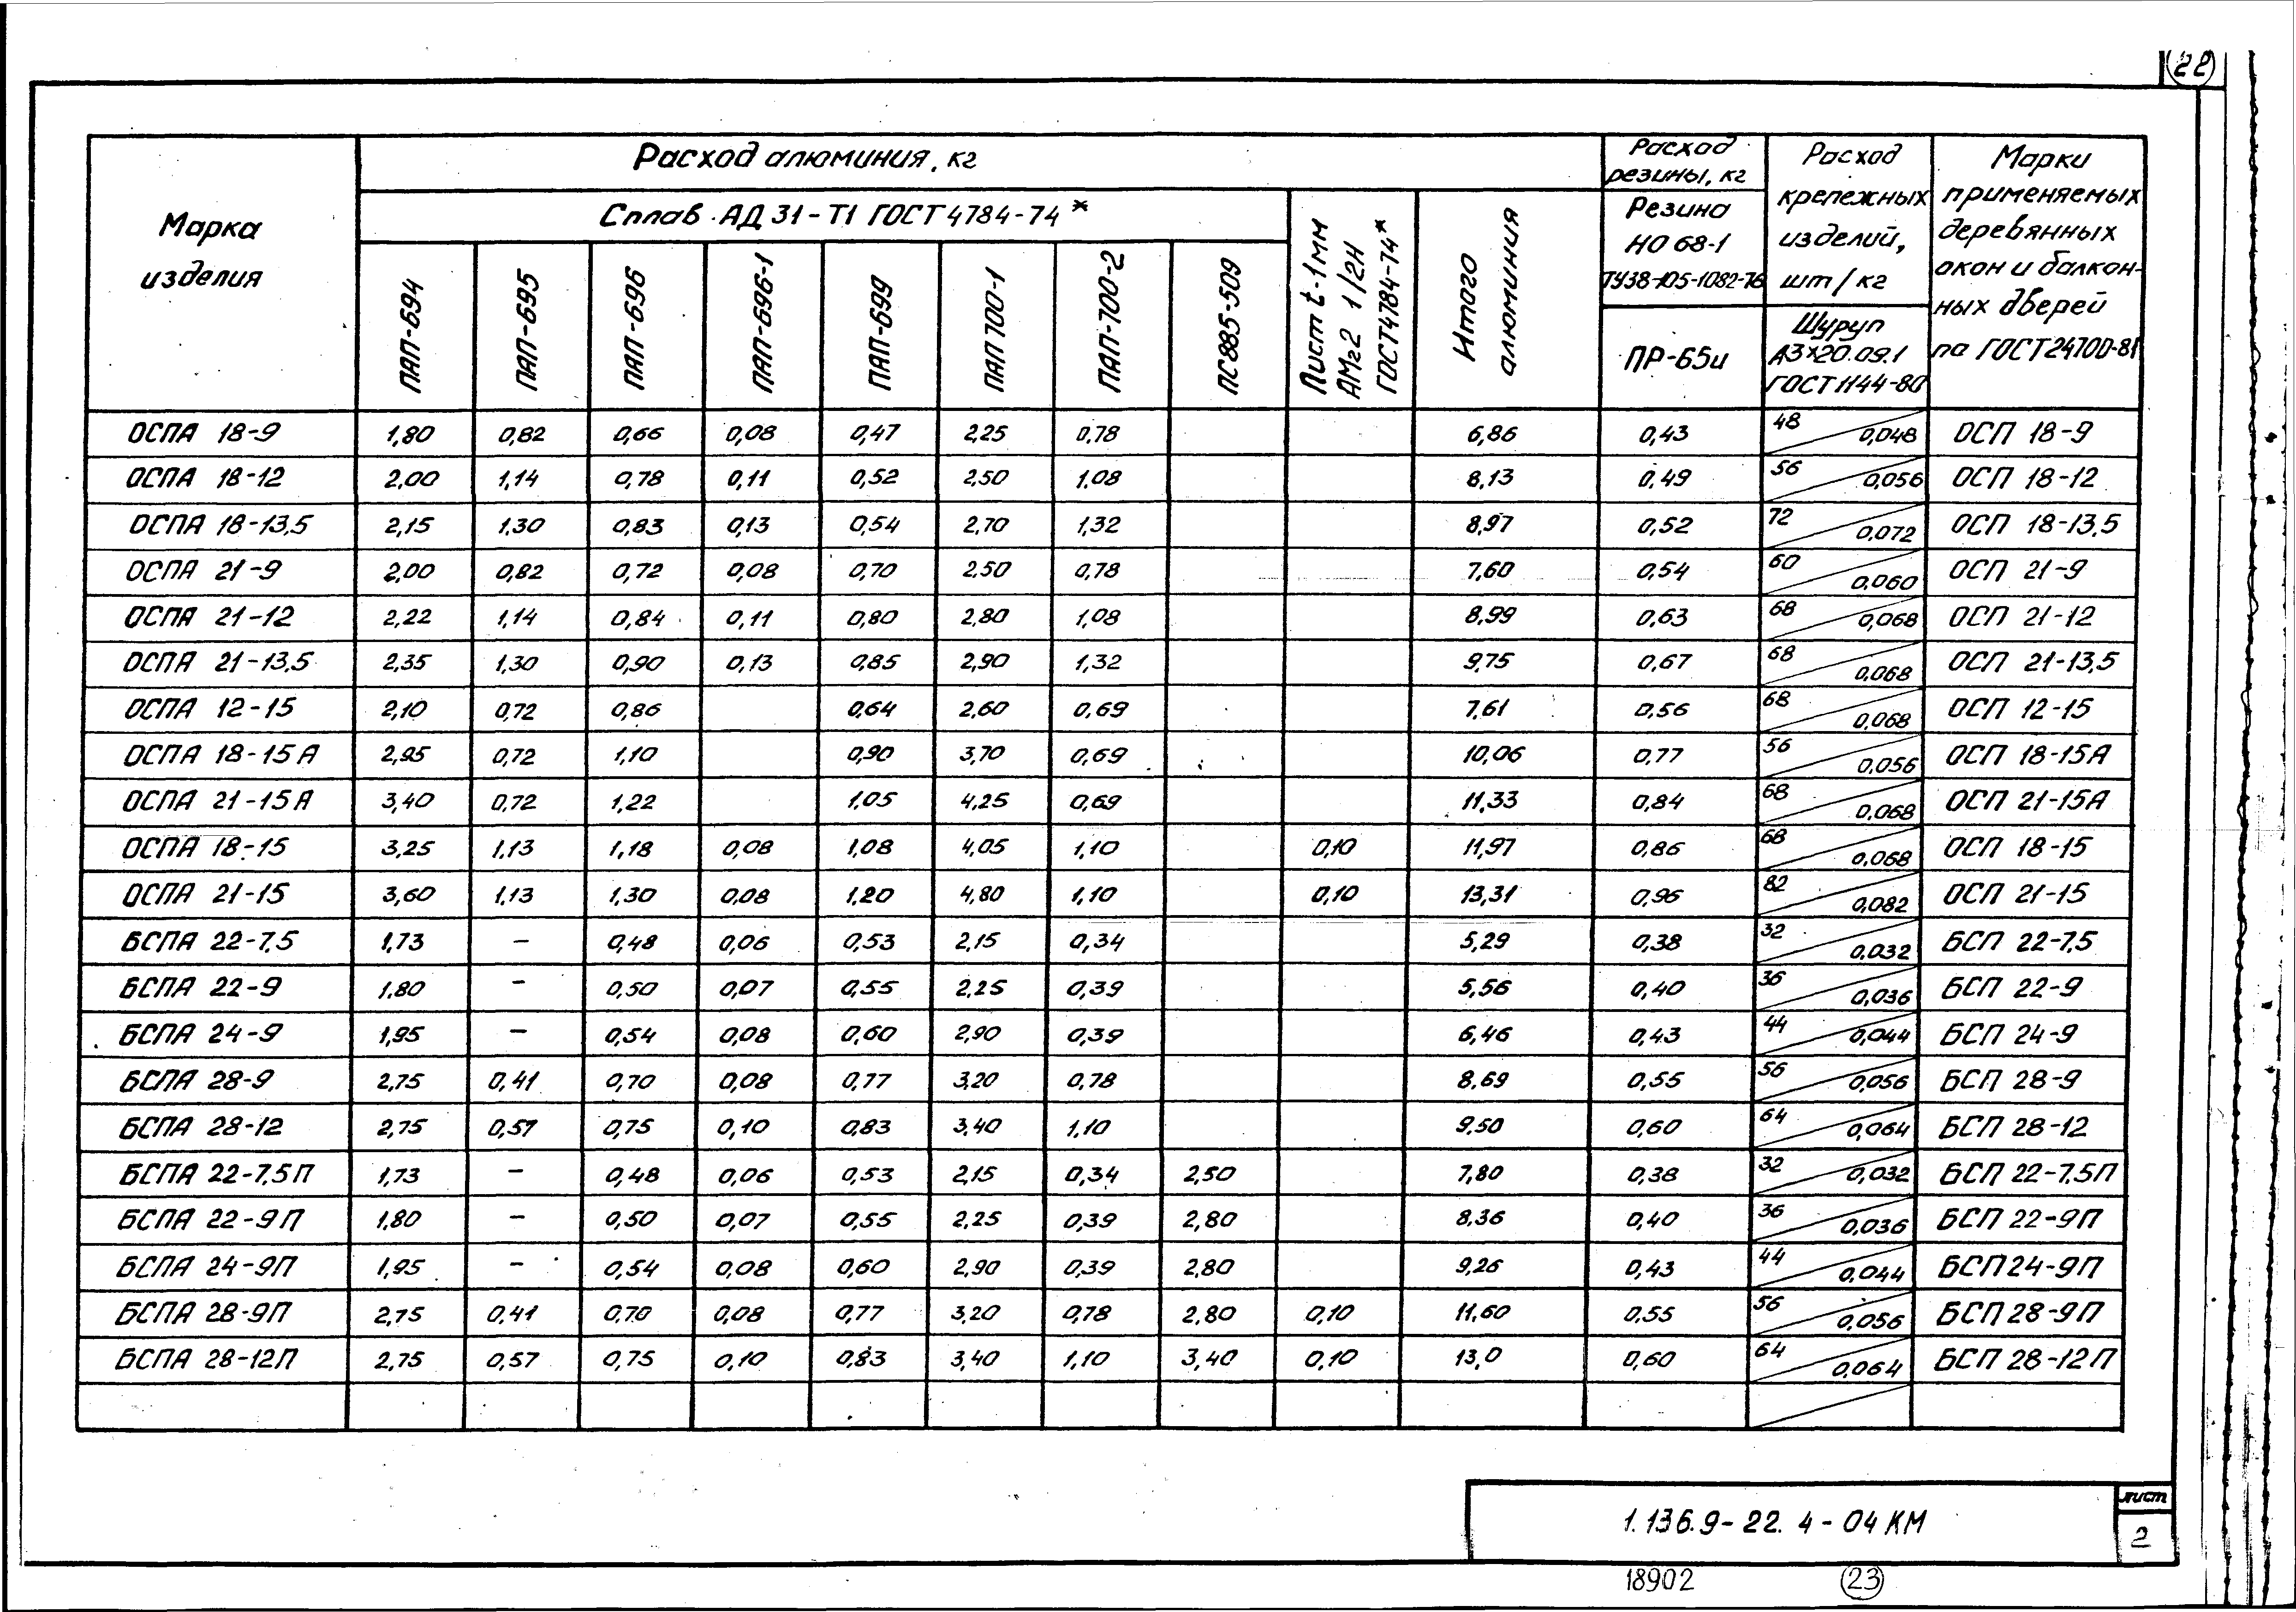 22
Марка изделия
Расход алюминия, кг
Сплав АД 31-Т1 ГОСТ 4784-74*
ПАП-694
ПАП-695
ПАП-696
ПАП-696-1
ПАП-699
ПАП 700-1
ПАП-700-2
ПС 885-509
Лист t-1мм АМг2 1/2Н ГОСТ4784-74*
Итого алюминия
Расход резины, кг
Резина НО 68-1 ТУ38-105-1082-76
ПР-65и
Расход крепежных изделий, шт/кг
Шуруп А3х20.09.1 ГОСТ 1144-80
Марки применяемых деревянных окон и балкон-ных дверей по ГОСТ 24700-81
ОСПА 18-9 1,80 0,82 0,66 0,08 0,47 2,25 0,78 6,86 0,43 48 0,048 ОСП 18-9
ОСПА 18-12 2,00 1,14 0,78 0,11 0,52 2,50 1,08 8,13 0,49 56 0,056 ОСП 18-12
ОСПА 18-13,5 2,15 1,30 0,83 0,13 0,54 2,70 1,32 8,97 0,52 72 0,072 ОСП 18-13,5
ОСПА 21-9 2,00 0,82 0,72 0,08 0,70 2,50 0,78 7,60 0,54 60 0,060 ОСП 21-9
ОСПА 21-12 2,22 1,14 0,84 0,11 0,80 2,80 1,08 8,99 0,63 68 0,068 ОСП 21-12
ОСПА 21-13,5 2,35 1,30 0,90 0,13 0,85 2,90 1,32 9,75 0,67 68 0,068 ОСП 21-13,5
ОСПА 12-15 2,10 0,72 0,86 0,64 2,60 0,69 7,61 0,56 68 0,068 ОСП 12-15
ОСПА 18-15А 2,95 0,72 1,10 0,90 3,70 0,69 10,06 0,77 56 0,056 ОСП 18-15А
ОСПА 21-15А 3,40 0,72 1,22 1,05 4,25 0,69 11,33 0,84 68 0,068 ОСП 21-15А
ОСПА 18-15 3,25 1,13 1,18 0,08 1,08 4,05 1,10 0,10 11,97 0,86 68 0,068 ОСП 18-15
ОСПА 21-15 3,60 1,13 1,30 0,08 1,20 4,80 1,10 0,10 13,31 0,96 82 0,082 ОСП 21-15
БСПА 22-7,5 1,73 – 0,48 0,06 0,53 2,15 0,34 5,29 0,38 32 0,032 БСП 22-7,5
БСПА 22-9 1,80 – 0,50 0,07 0,55 2,25 0,39 5,56 0,40 36 0,036 БСП 22-9
БСПА 24-9 1,95 – 0,54 0,08 0,60 2,90 0,39 6,46 0,43 44 0,044 БСП 24-9
БСПА 28-9 2,75 0,41 0,70 0,08 0,77 3,20 0,78 8,69 0,55 56 0,056 БСП 28-9
БСПА 28-12 2,75 0,57 0,75 0,10 0,83 3,40 1,10 9,50 0,60 64 0,064 БСП 28-12
БСПА 22-7,5П 1,73 – 0,48 0,06 0,53 2,15 0,34 2,50 7,80 0,38 32 0,032 БСП 22-7,5П
БСПА 22-9П 1,80 – 0,50 0,07 0,55 2,25 0,39 2,80 8,36 0,40 36 0,036 БСП 22-9П
БСПА 24-9П 1,95 – 0,54 0,08 0,60 2,90 0,39 2,80 9,26 0,43 44 0,044 БСП 24-9П
БСПА 28-9П 2,75 0,41 0,70 0,08 0,77 3,20 0,78 2,80 0,10 11,60 0,55 56 0,056 БСП 28-9П
БСПА 28-12П 2,75 0,57 0,75 0,10 0,83 3,40 1,10 3,40 0,10 13,0 0,60 64 0,064 БСП 28-12П
1.136.9-22.4-04 КМ
лист
2
18902
23